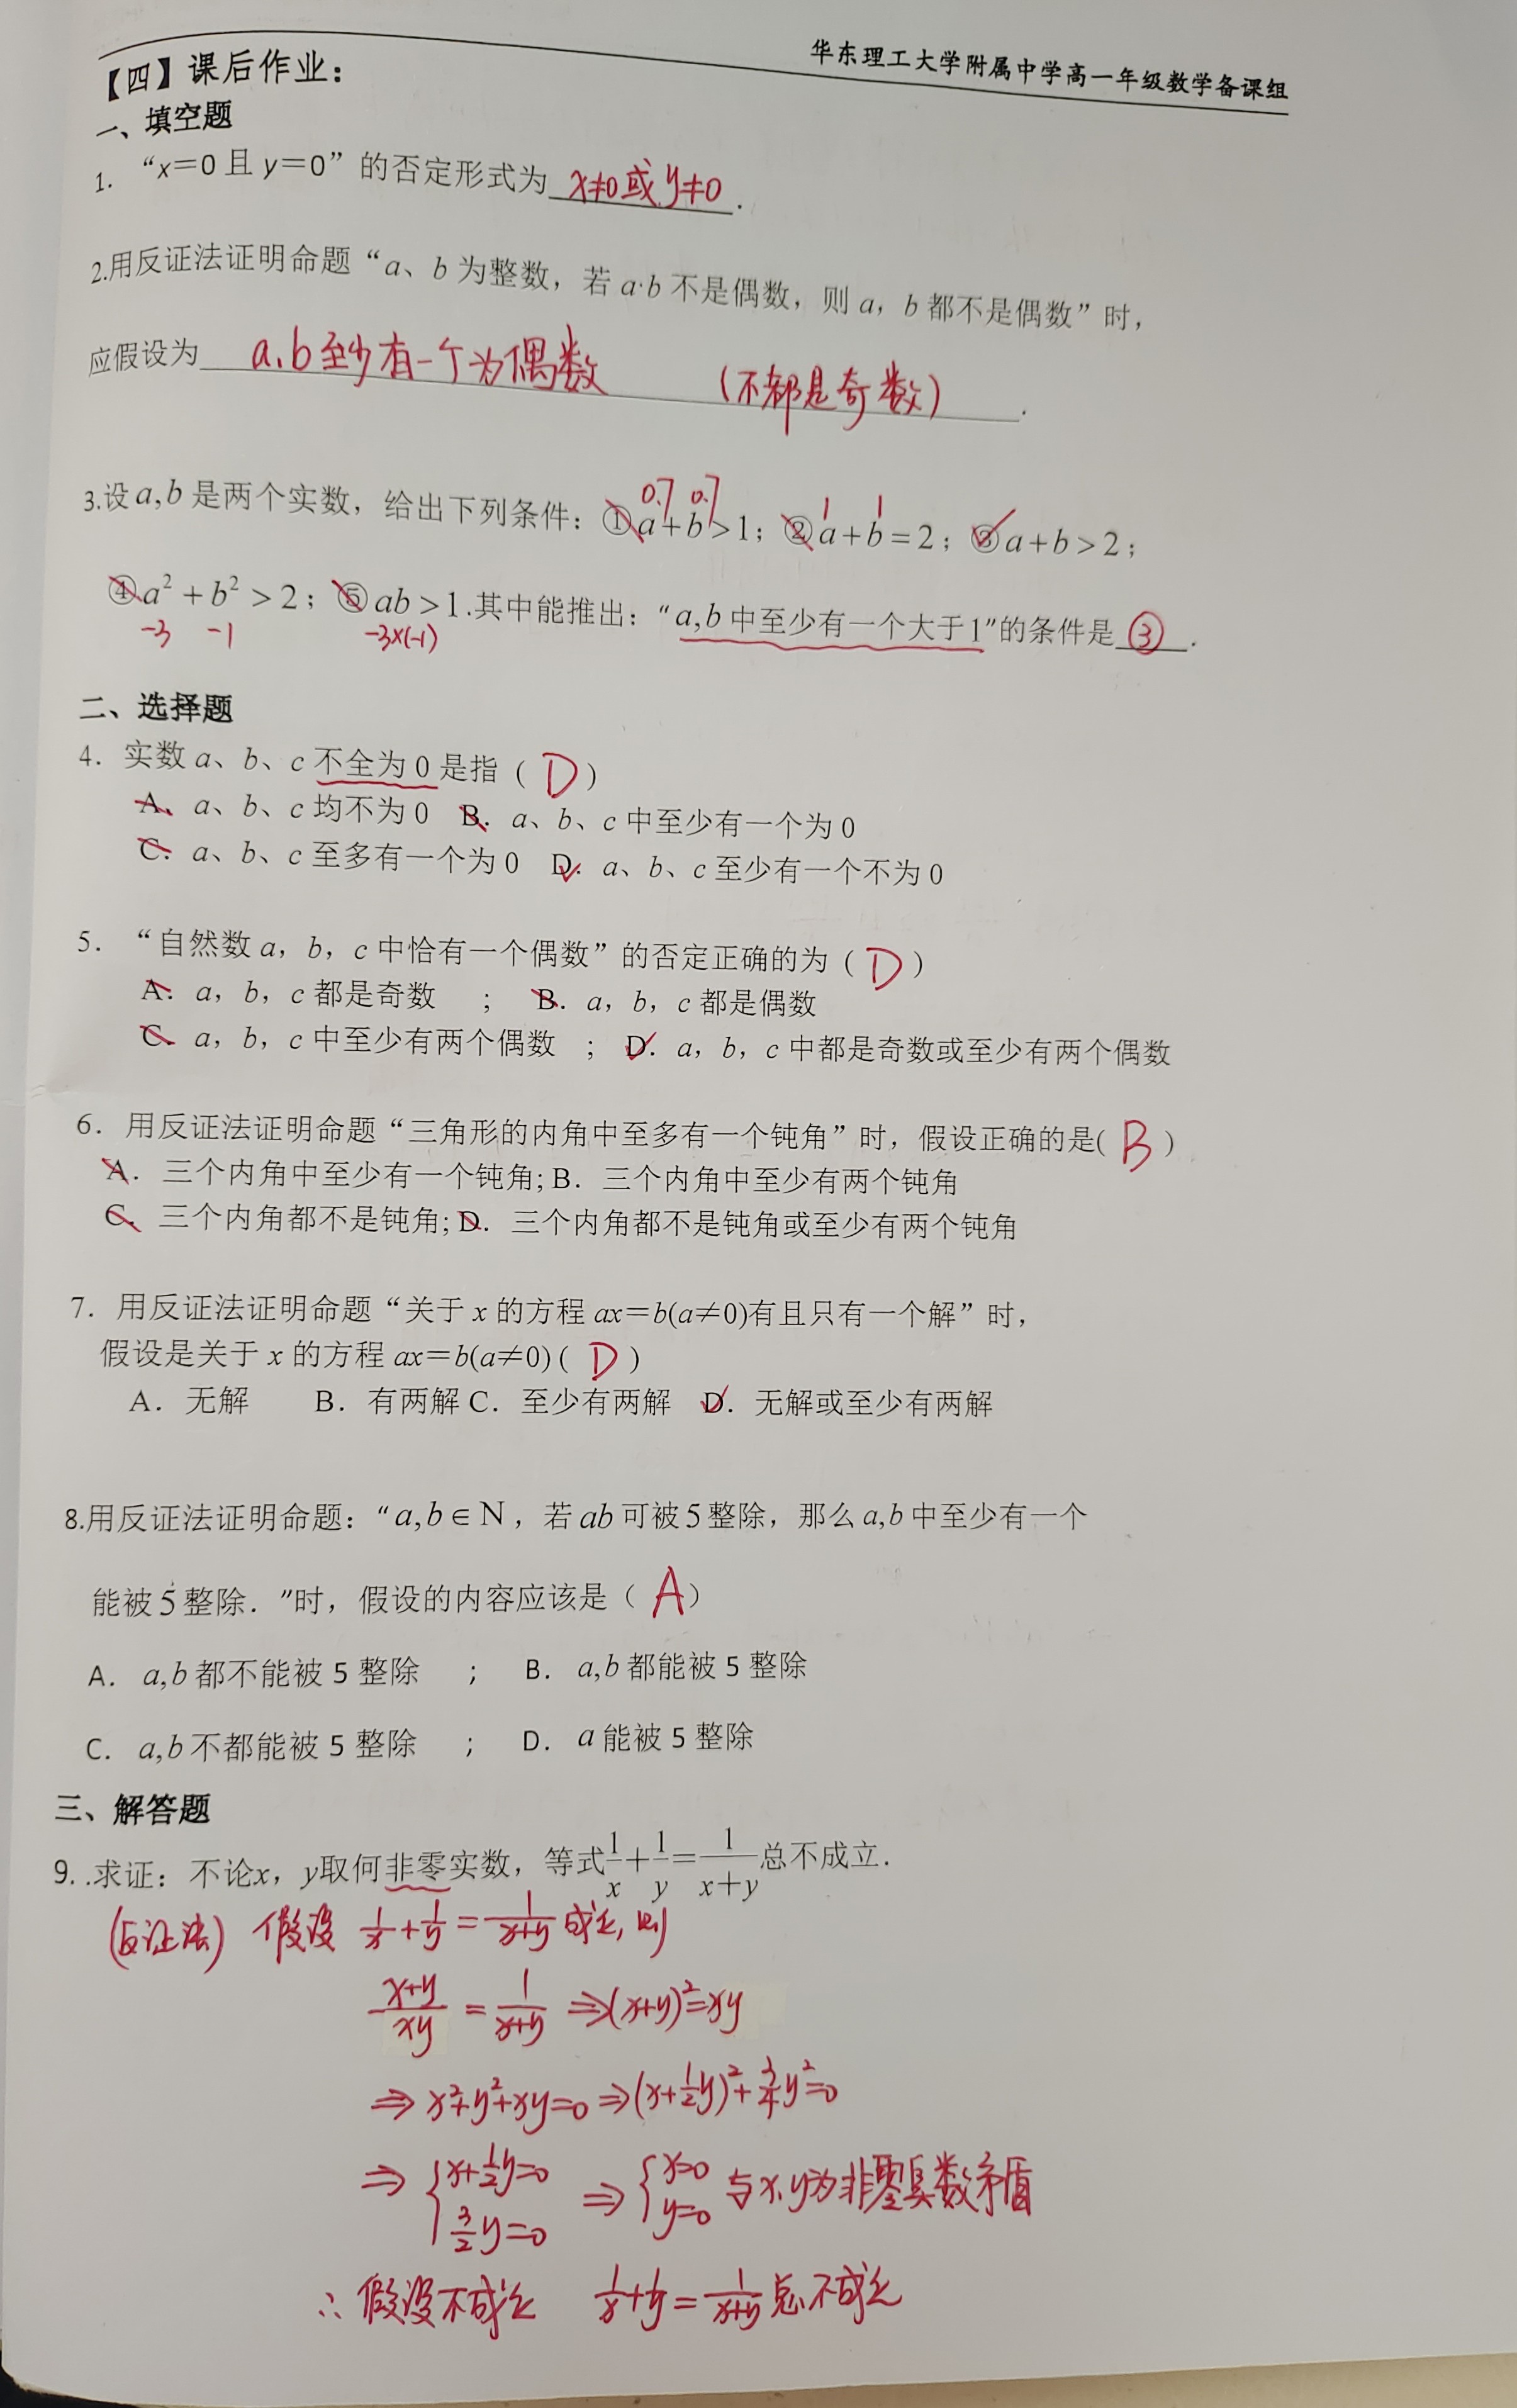 华东理工大学附属中学高一年级数学备课组
【四】课后作业：
一、填空题
1. “x＝0 且 y＝0” 的否定形式为 x≠0或y≠0 .
2.用反证法证明命题“a、b 为整数，若 a·b 不是偶数，则 a，b 都不是偶数”时，
应假设为 a、b至少有一个为偶数 （不都是奇数） .
0.7 0.7 1 1
3.设 a,b 是两个实数，给出下列条件：①a+b>1；②a+b=2；③a+b>2；
④a²+b²>2；⑤ab>1.其中能推出：“a,b 中至少有一个大于1”的条件是 ③ .
-3 -1 -3×(-1)
二、选择题
4．实数 a、b、c 不全为 0 是指（ D ）
A．a、b、c 均不为 0 B．a、b、c 中至少有一个为 0
C．a、b、c 至多有一个为 0 D．a、b、c 至少有一个不为 0
5．“自然数 a，b，c 中恰有一个偶数”的否定正确的为（ D ）
A．a，b，c 都是奇数 ； B．a，b，c 都是偶数
C．a，b，c 中至少有两个偶数 ； D．a，b，c 中都是奇数或至少有两个偶数
6．用反证法证明命题“三角形的内角中至多有一个钝角”时，假设正确的是( B )
A．三个内角中至少有一个钝角; B．三个内角中至少有两个钝角
C．三个内角都不是钝角; D．三个内角都不是钝角或至少有两个钝角
7．用反证法证明命题“关于 x 的方程 ax＝b(a≠0)有且只有一个解”时，
假设是关于 x 的方程 ax＝b(a≠0) ( D )
A．无解 B．有两解 C．至少有两解 D．无解或至少有两解
8.用反证法证明命题：“a,b∈N，若 ab 可被 5 整除，那么 a,b 中至少有一个
能被 5 整除．”时，假设的内容应该是（ A ）
A． a,b 都不能被 5 整除 ； B． a,b 都能被 5 整除
C． a,b 不都能被 5 整除 ； D． a 能被 5 整除
三、解答题
9. .求证：不论x，y取何非零实数，等式1/x+1/y=1/(x+y)总不成立.
(反证法) 假设 1/x+1/y=1/(x+y) 成立, 则
(x+y)/xy = 1/(x+y) ⇒(x+y)²=xy
⇒ x²+y²+xy=0 ⇒(x+1/2y)²+3/4y²=0
⇒ {x+1/2y=0 3/2y=0 ⇒ {x=0 y=0 与x、y为非零实数矛盾
∴ 假设不成立 1/x+1/y=1/(x+y)总不成立